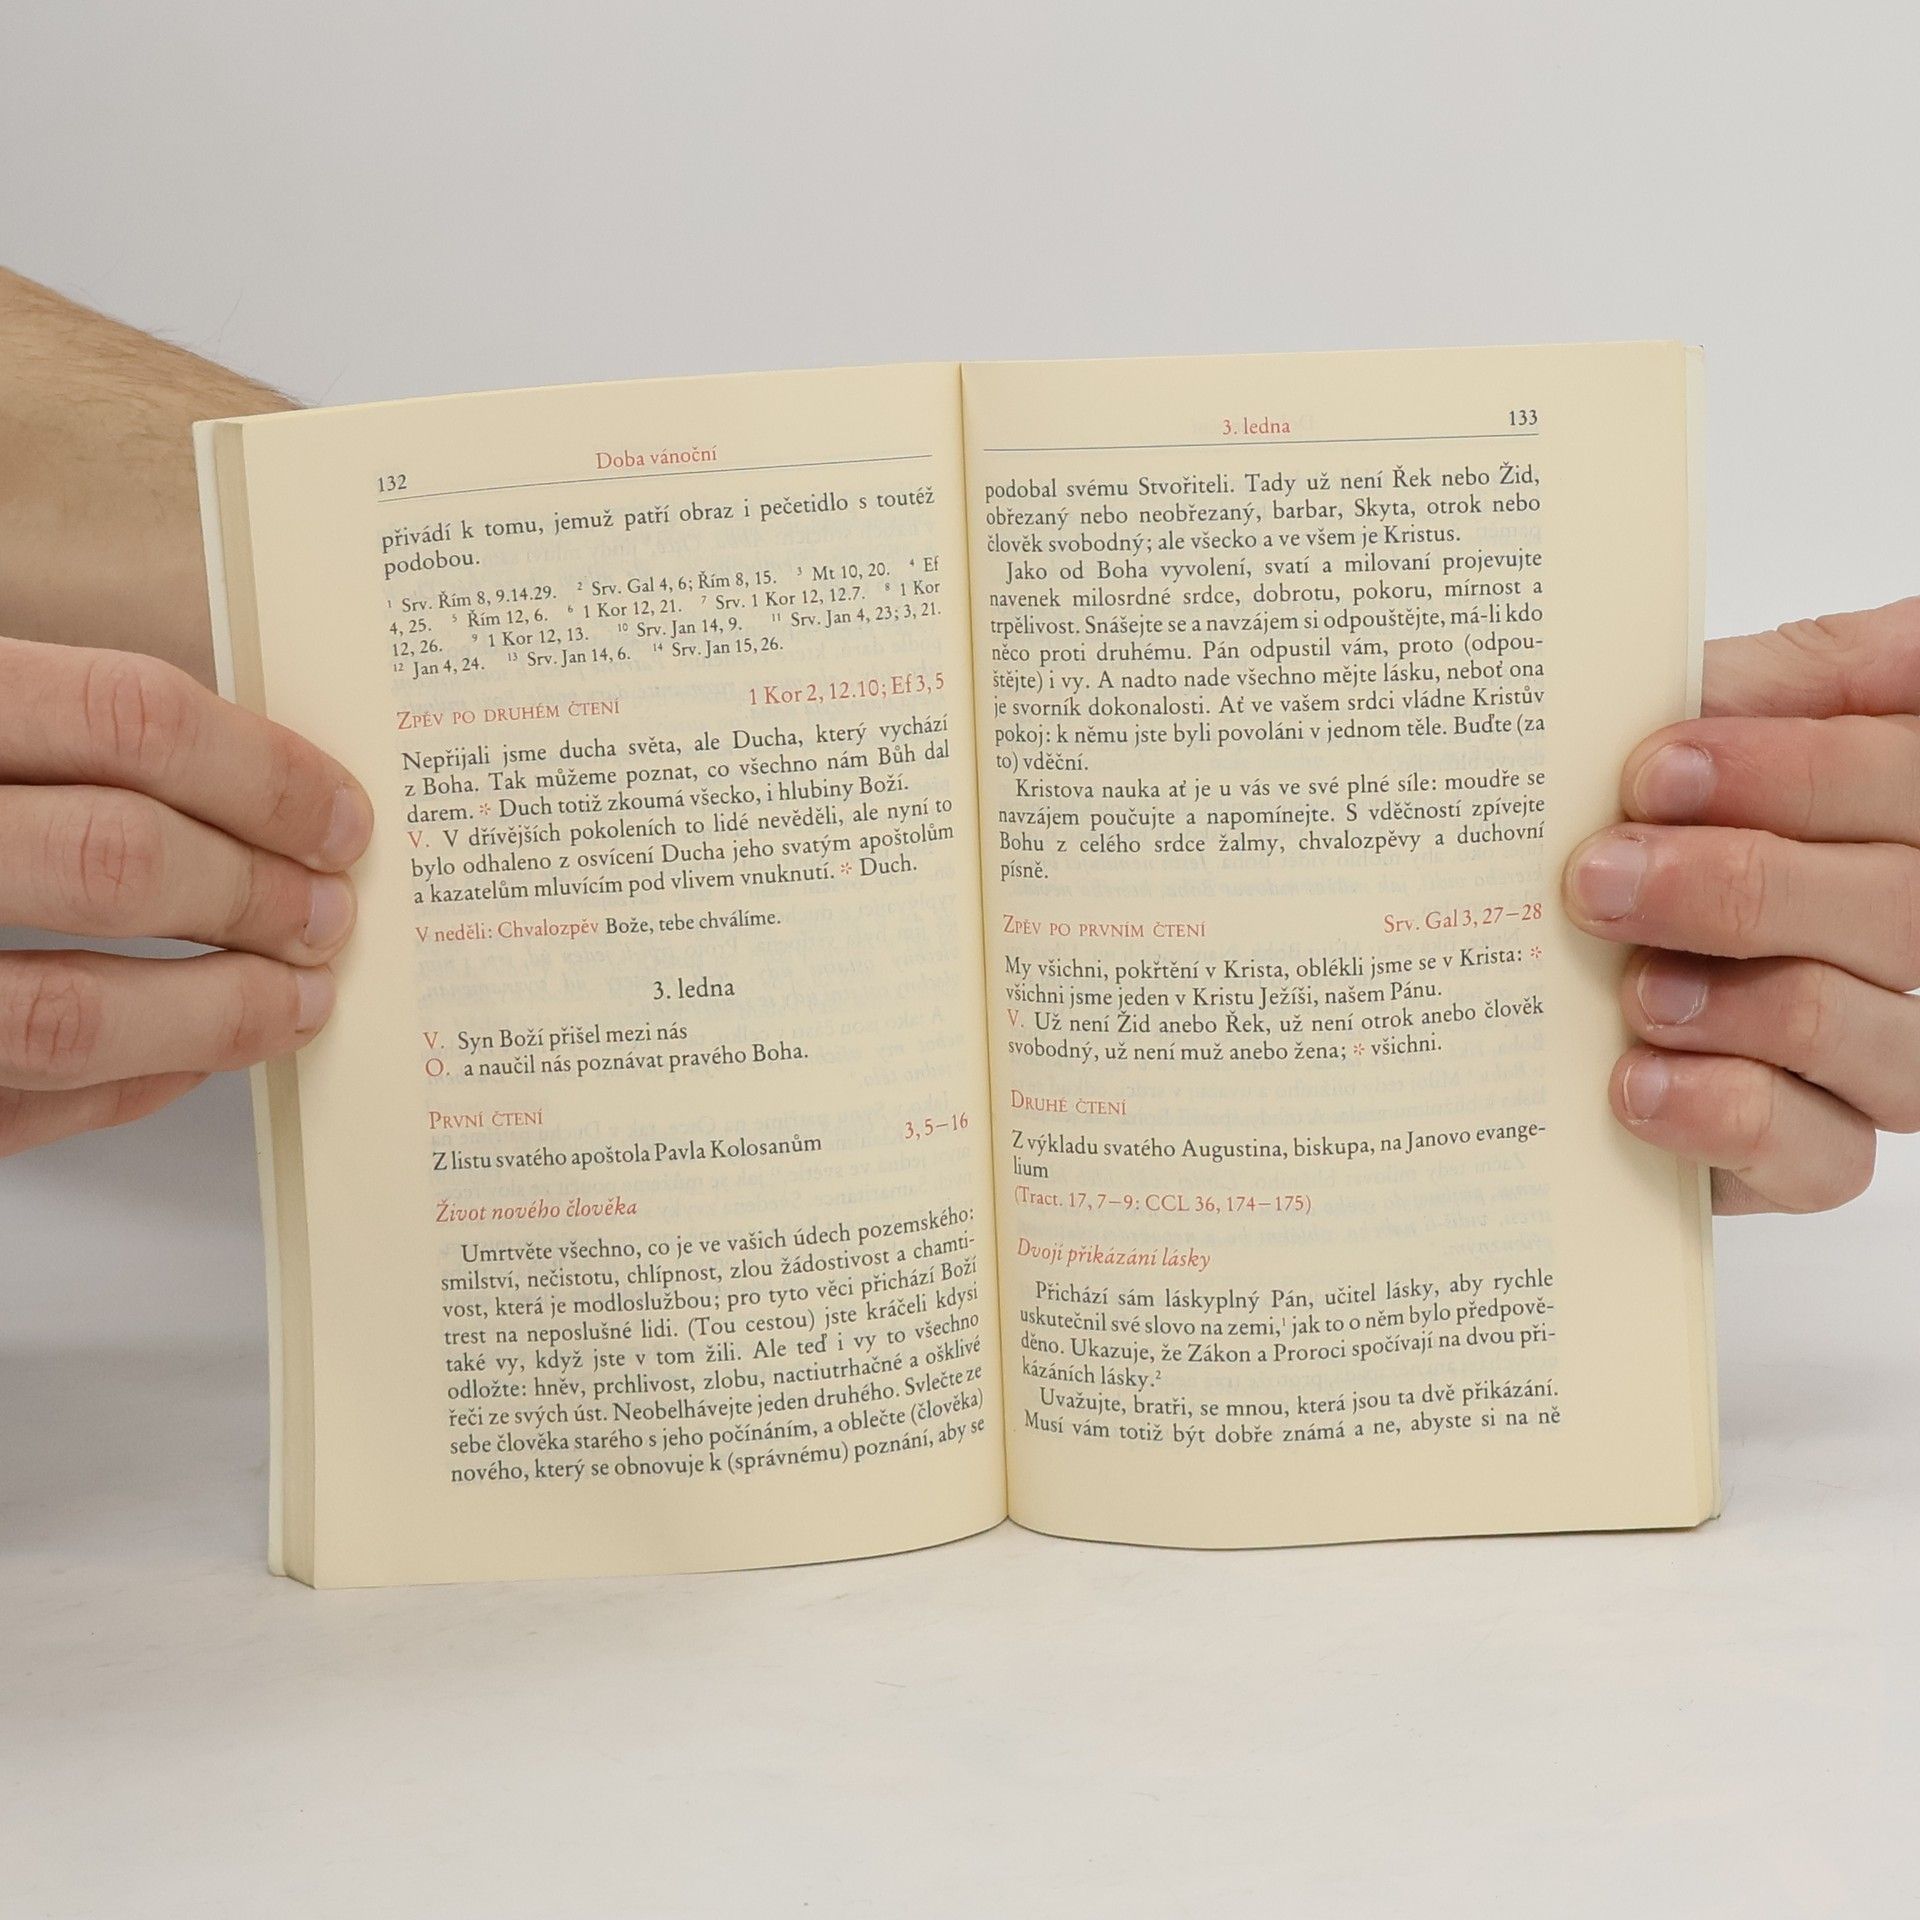 132
Doba vánoční
přivádí k tomu, jemuž patří obraz i pečetidlo s toutéž
podobou.
1 Srv. Řím 8, 9.14.29. 2 Srv. Gal 4, 6; Řím 8, 15. 3 Mt 10, 20. 4 Ef
4, 25. 5 Řím 12, 6. 6 1 Kor 12, 21. 7 Srv. 1 Kor 12, 12.7. 8 1 Kor
12, 26. 9 1 Kor 12, 13. 10 Srv. Jan 14, 9. 11 Srv. Jan 4, 23; 3, 21.
12 Jan 4, 24. 13 Srv. Jan 14, 6. 14 Srv. Jan 15, 26.
ZPĚV PO DRUHÉM ČTENÍ 1 Kor 2, 12.10; Ef 3, 5
Nepřijali jsme ducha světa, ale Ducha, který vychází
z Boha. Tak můžeme poznat, co všechno nám Bůh dal
darem. * Duch totiž zkoumá všecko, i hlubiny Boží.
V. V dřívějších pokoleních to lidé nevěděli, ale nyní to
bylo odhaleno z osvícení Ducha jeho svatým apoštolům
a kazatelům mluvícím pod vlivem vnuknutí. * Duch.
V neděli: Chvalozpěv Bože, tebe chválíme.
3. ledna
V. Syn Boží přišel mezi nás
O. a naučil nás poznávat pravého Boha.
PRVNÍ ČTENÍ
Z listu svatého apoštola Pavla Kolosanům 3, 5–16
Život nového člověka
Umrtvěte všechno, co je ve vašich údech pozemského:
smilství, nečistotu, chlípnost, zlou žádostivost a chamti-
vost, která je modloslužbou; pro tyto věci přichází Boží
trest na neposlušné lidi. (Tou cestou) jste kráčeli kdysi
také vy, když jste v tom žili. Ale teď i vy to všechno
odložte: hněv, prchlivost, zlobu, nactiutrhačné a ošklivé
řeči ze svých úst. Neobelhávejte jeden druhého. Svlečte ze
sebe člověka starého s jeho počínáním, a oblečte (člověka)
nového, který se obnovuje k (správnému) poznání, aby se
3. ledna
133
podobal svému Stvořiteli. Tady už není Řek nebo Žid,
obřezaný nebo neobřezaný, barbar, Skyta, otrok nebo
člověk svobodný; ale všecko a ve všem je Kristus.
Jako od Boha vyvolení, svatí a milovaní projevujte
navenek milosrdné srdce, dobrotu, pokoru, mírnost a
trpělivost. Snášejte se a navzájem si odpouštějte, má-li kdo
něco proti druhému. Pán odpustil vám, proto (odpou-
štějte) i vy. A nadto nade všechno mějte lásku, neboť ona
je svorník dokonalosti. Ať ve vašem srdci vládne Kristův
pokoj: k němu jste byli povoláni v jednom těle. Buďte (za
to) vděční.
Kristova nauka ať je u vás ve své plné síle: moudře se
navzájem poučujte a napomínejte. S vděčností zpívejte
Bohu z celého srdce žalmy, chvalozpěvy a duchovní
písně.
ZPĚV PO PRVNÍM ČTENÍ Srv. Gal 3, 27–28
My všichni, pokřtění v Krista, oblékli jsme se v Krista: *
všichni jsme jeden v Kristu Ježíši, našem Pánu.
V. Už není Žid anebo Řek, už není otrok anebo člověk
svobodný, už není muž anebo žena; * všichni.
DRUHÉ ČTENÍ
Z výkladu svatého Augustina, biskupa, na Janovo evange-
lium
(Tract. 17, 7–9: CCL 36, 174–175)
Dvojí přikázání lásky
Přichází sám láskyplný Pán, učitel lásky, aby rychle
uskutečnil své slovo na zemi,1 jak to o něm bylo předpově-
děno. Ukazuje, že Zákon a Proroci spočívají na dvou při-
kázáních lásky.2
Uvažujte, bratři, se mnou, která jsou ta dvě přikázání.
Musí vám totiž být dobře známá a ne, abyste si na ně